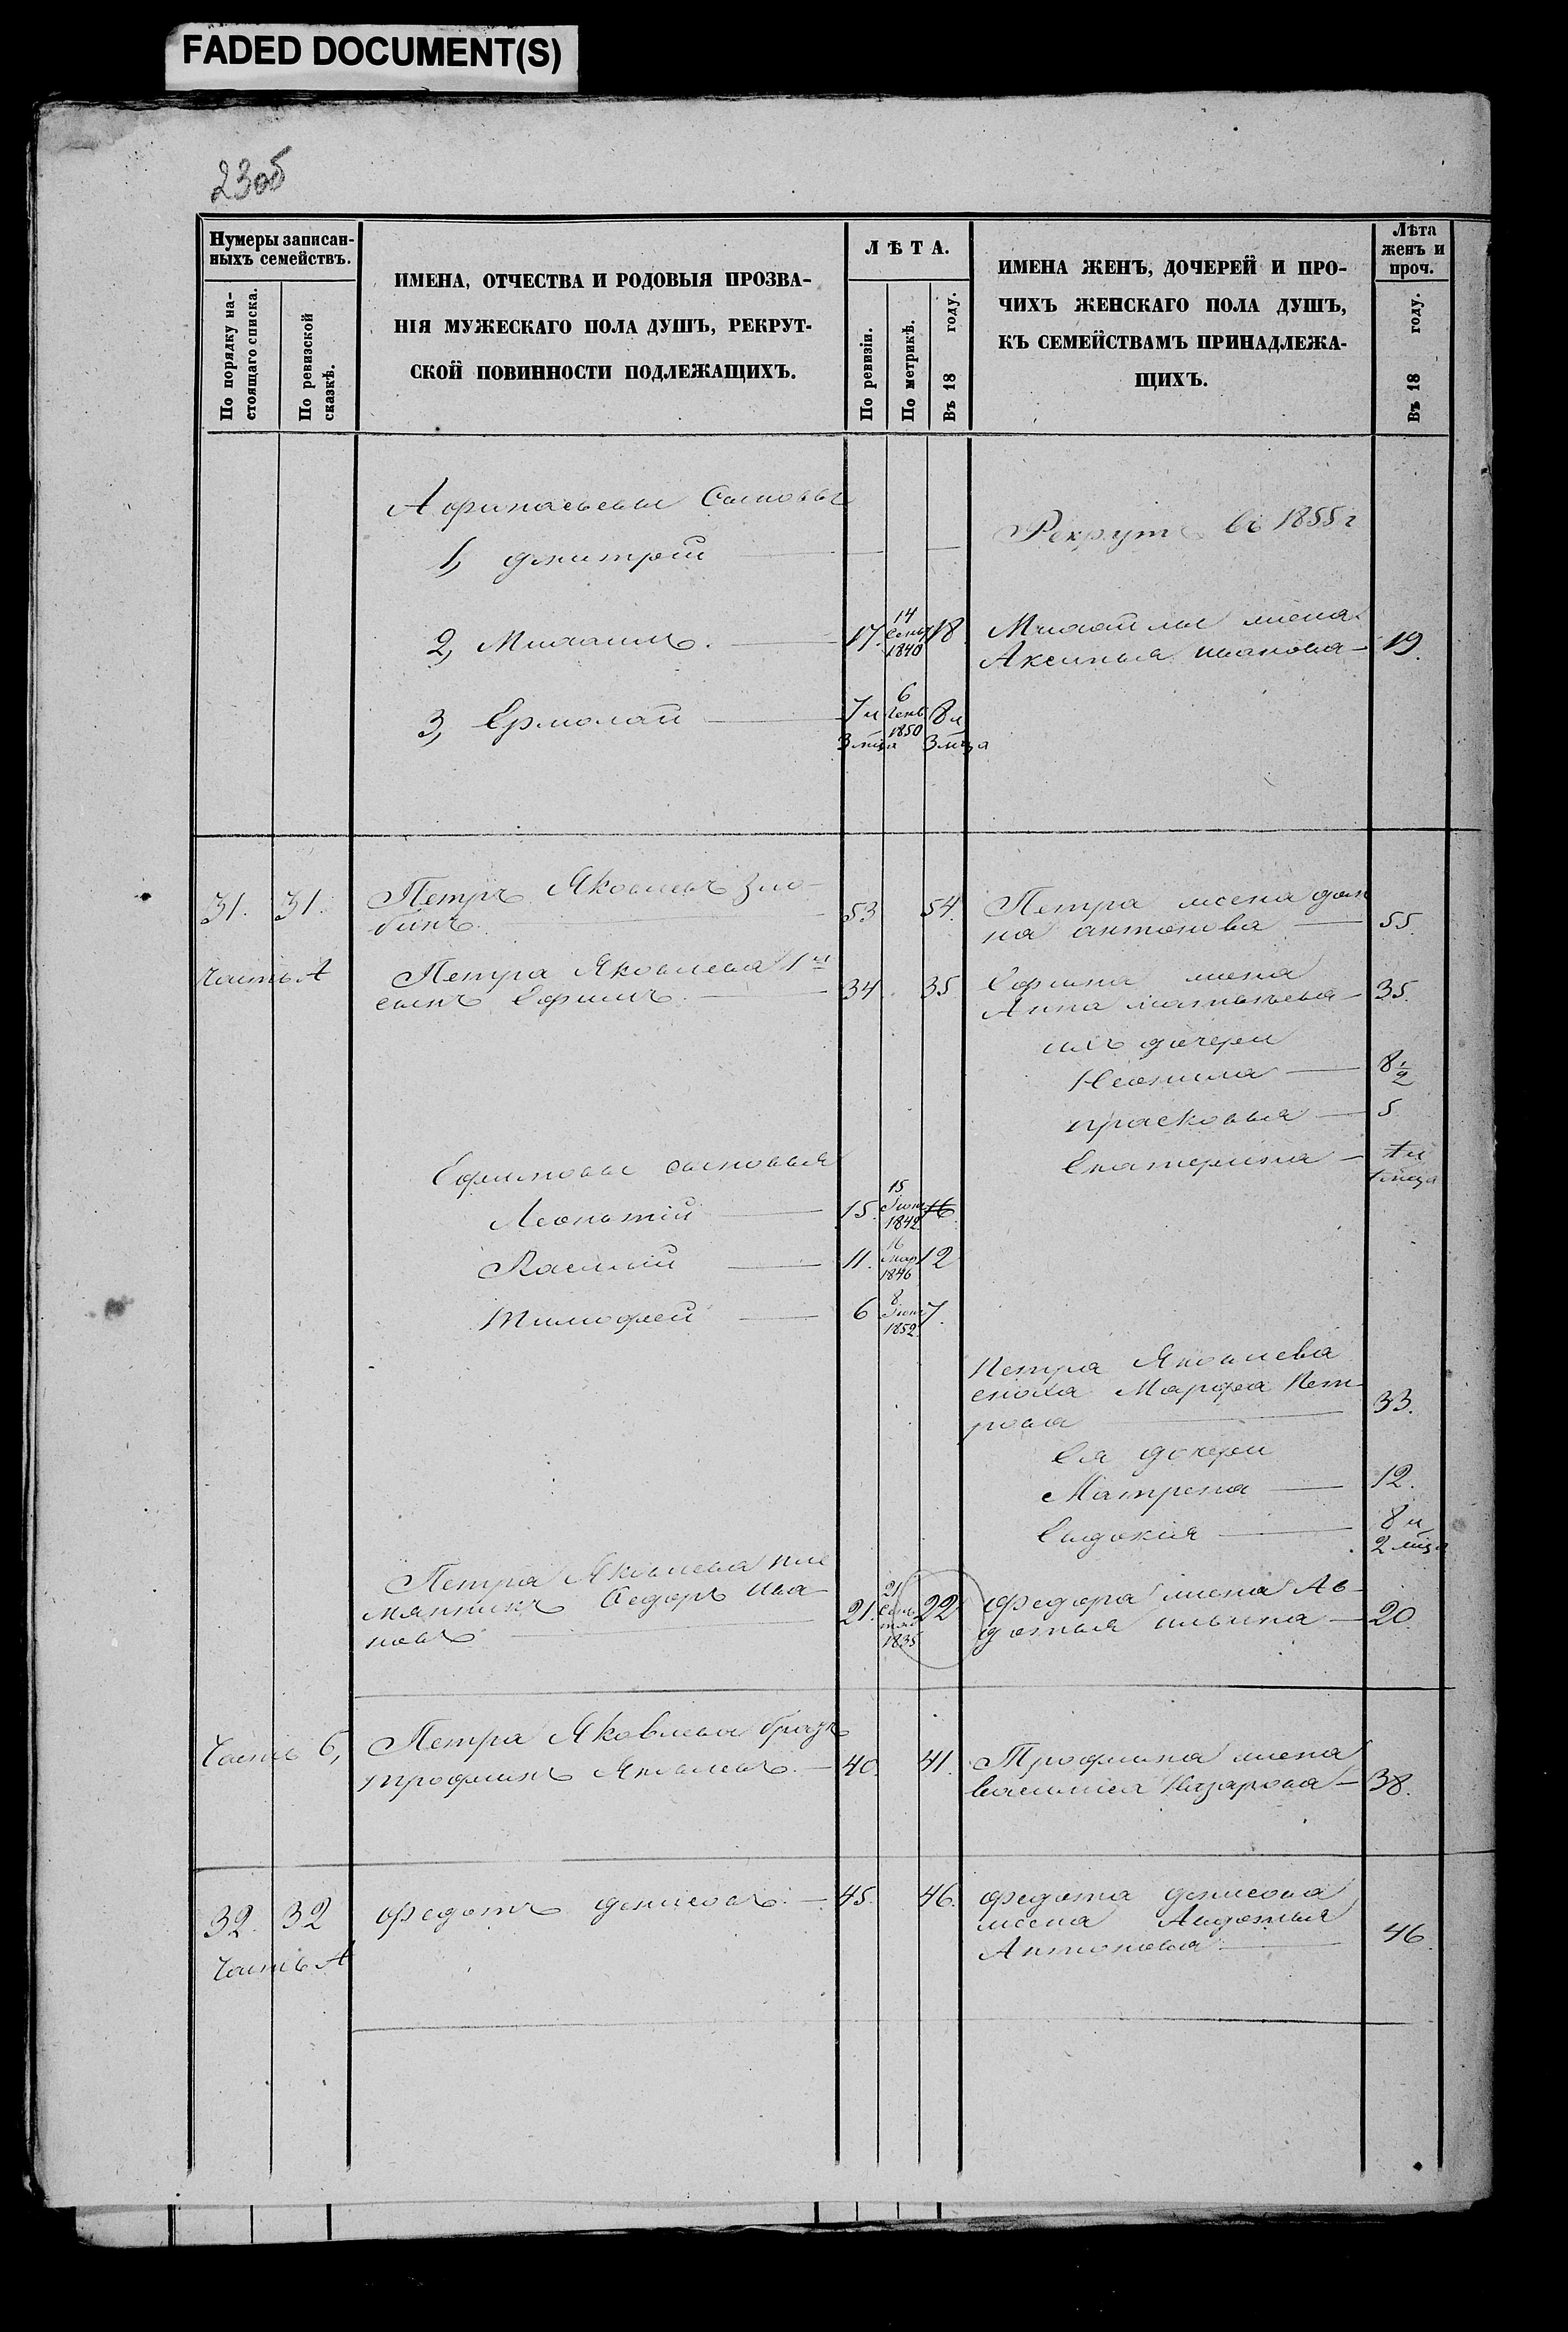 FADED DOCUMENT(S)
23об
Нумеры записан-
ныхъ семействъ.
По порядку на-
стоящаго списка.
По ревизской
сказкѣ.
ИМЕНА, ОТЧЕСТВА И РОДОВЫЯ ПРОЗВА-
НІЯ МУЖЕСКАГО ПОЛА ДУШЪ, РЕКРУТ-
СКОЙ ПОВИННОСТИ ПОДЛЕЖАЩИХЪ.
ЛѢТА.
По ревизіи.
По метрикѣ.
Въ 18 году.
ИМЕНА ЖЕНЪ, ДОЧЕРЕЙ И ПРО-
ЧИХЪ ЖЕНСКАГО ПОЛА ДУШЪ,
КЪ СЕМЕЙСТВАМЪ ПРИНАДЛЕЖА-
ЩИХЪ.
Лѣта
женъ и
проч.
Въ 18 году.
Сыновья
1, Дмитрей
Рекрутъ въ 1855 г
2, Михаилъ. 17. 14 Сент 1840 18.
Михайлы жена
Аксинья Иванова 19.
3, Ермолай 7 и 3 мца 6 1850 8 и 3 мца
31. 31. Петръ Яковлевъ Зло-
бинъ 53 54.
Петра жена Дом
на Антонова 55.
Часть А Петра Яковлева 1й
сынъ Ефимъ 34. 35
Ефима жена
Анна 35.
ихъ дочери
Неонила 8 1/2
Прасковья 5
Екатерина
Ефимовы сыновья
Леонтий 15. 15 Июн 1842 16.
Василий 11. 16 Мар 1846 12
Тимофей 6 8 Июн 1852 7.
Петра Яковлева
сноха Марфа Пет-
рова 33.
Ея дочери
Матрена 12.
Евдокия 8 и 2 мца
Петра Яковлева пле
мянникъ Федоръ Ива-
новъ 21. 21 Сентяб 1835 22
Федора жена Ав-
дотья Ильина 20.
Часть б, Петра Яковлева братъ
Трофимъ Яковлевъ 40. 41.
Трофима жена
Василиса Назарова 38.
32. 32 Федотъ Денисовъ. 45. 46.
Часть А
Федота Денисова
жена Авдотья
Антонова 46.